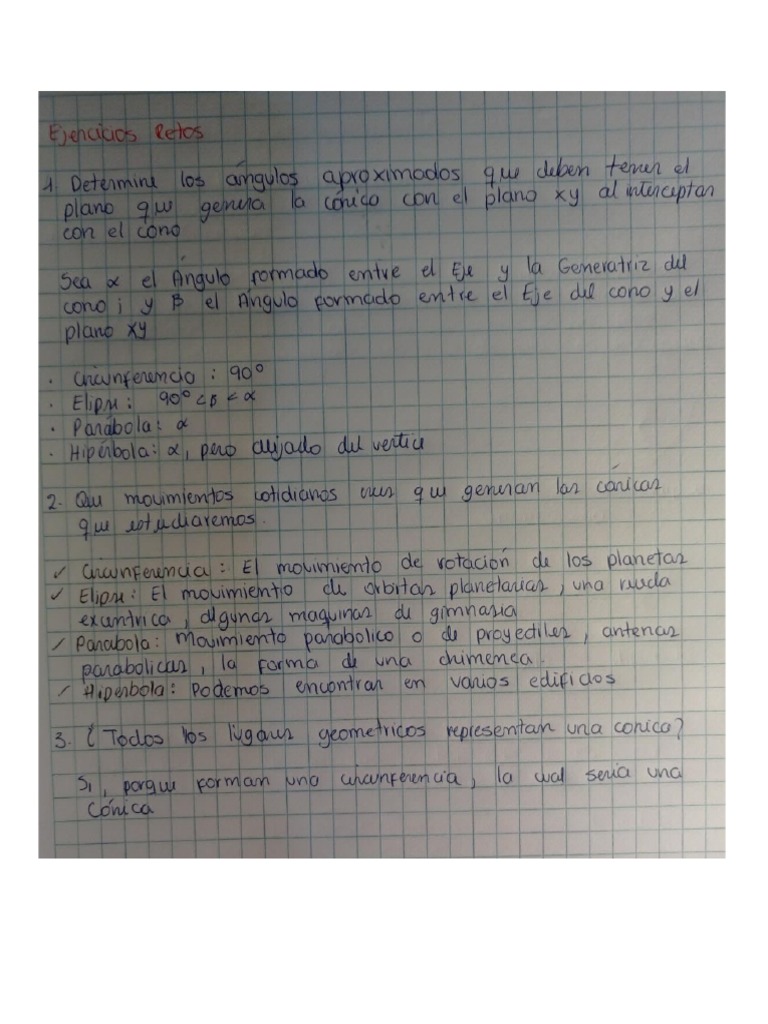 Ejercicios Retos
1. Determine los ángulos aproximados que deben tener el
plano que genera la cónica con el plano xy al interceptar
con el cono
Sea α el Ángulo formado entre el Eje y la Generatriz del
cono; y β el Ángulo formado entre el Eje del cono y el
plano xy
. Circunferencia : 90°
. Elipse: 90° < β < α
. Parábola: α
. Hipérbola: α, pero alejado del vertice
2. Que movimientos cotidianos crees que generan las cónicas
que estudiaremos.
✓ Circunferencia: El movimiento de rotación de los planetas
✓ Elipse: El movimiento de orbitas planetarias, una rueda
excentrica, algunas maquinas de gimnasia
✓ Parabola: movimiento parabolico o de proyectiles, antenas
parabolicas, la forma de una chimenea.
✓ Hiperbola: Podemos encontrar en varios edificios
3. ¿Todos los lugares geometricos representan una conica?
Si, porque forman una circunferencia, la cual seria una
Cónica